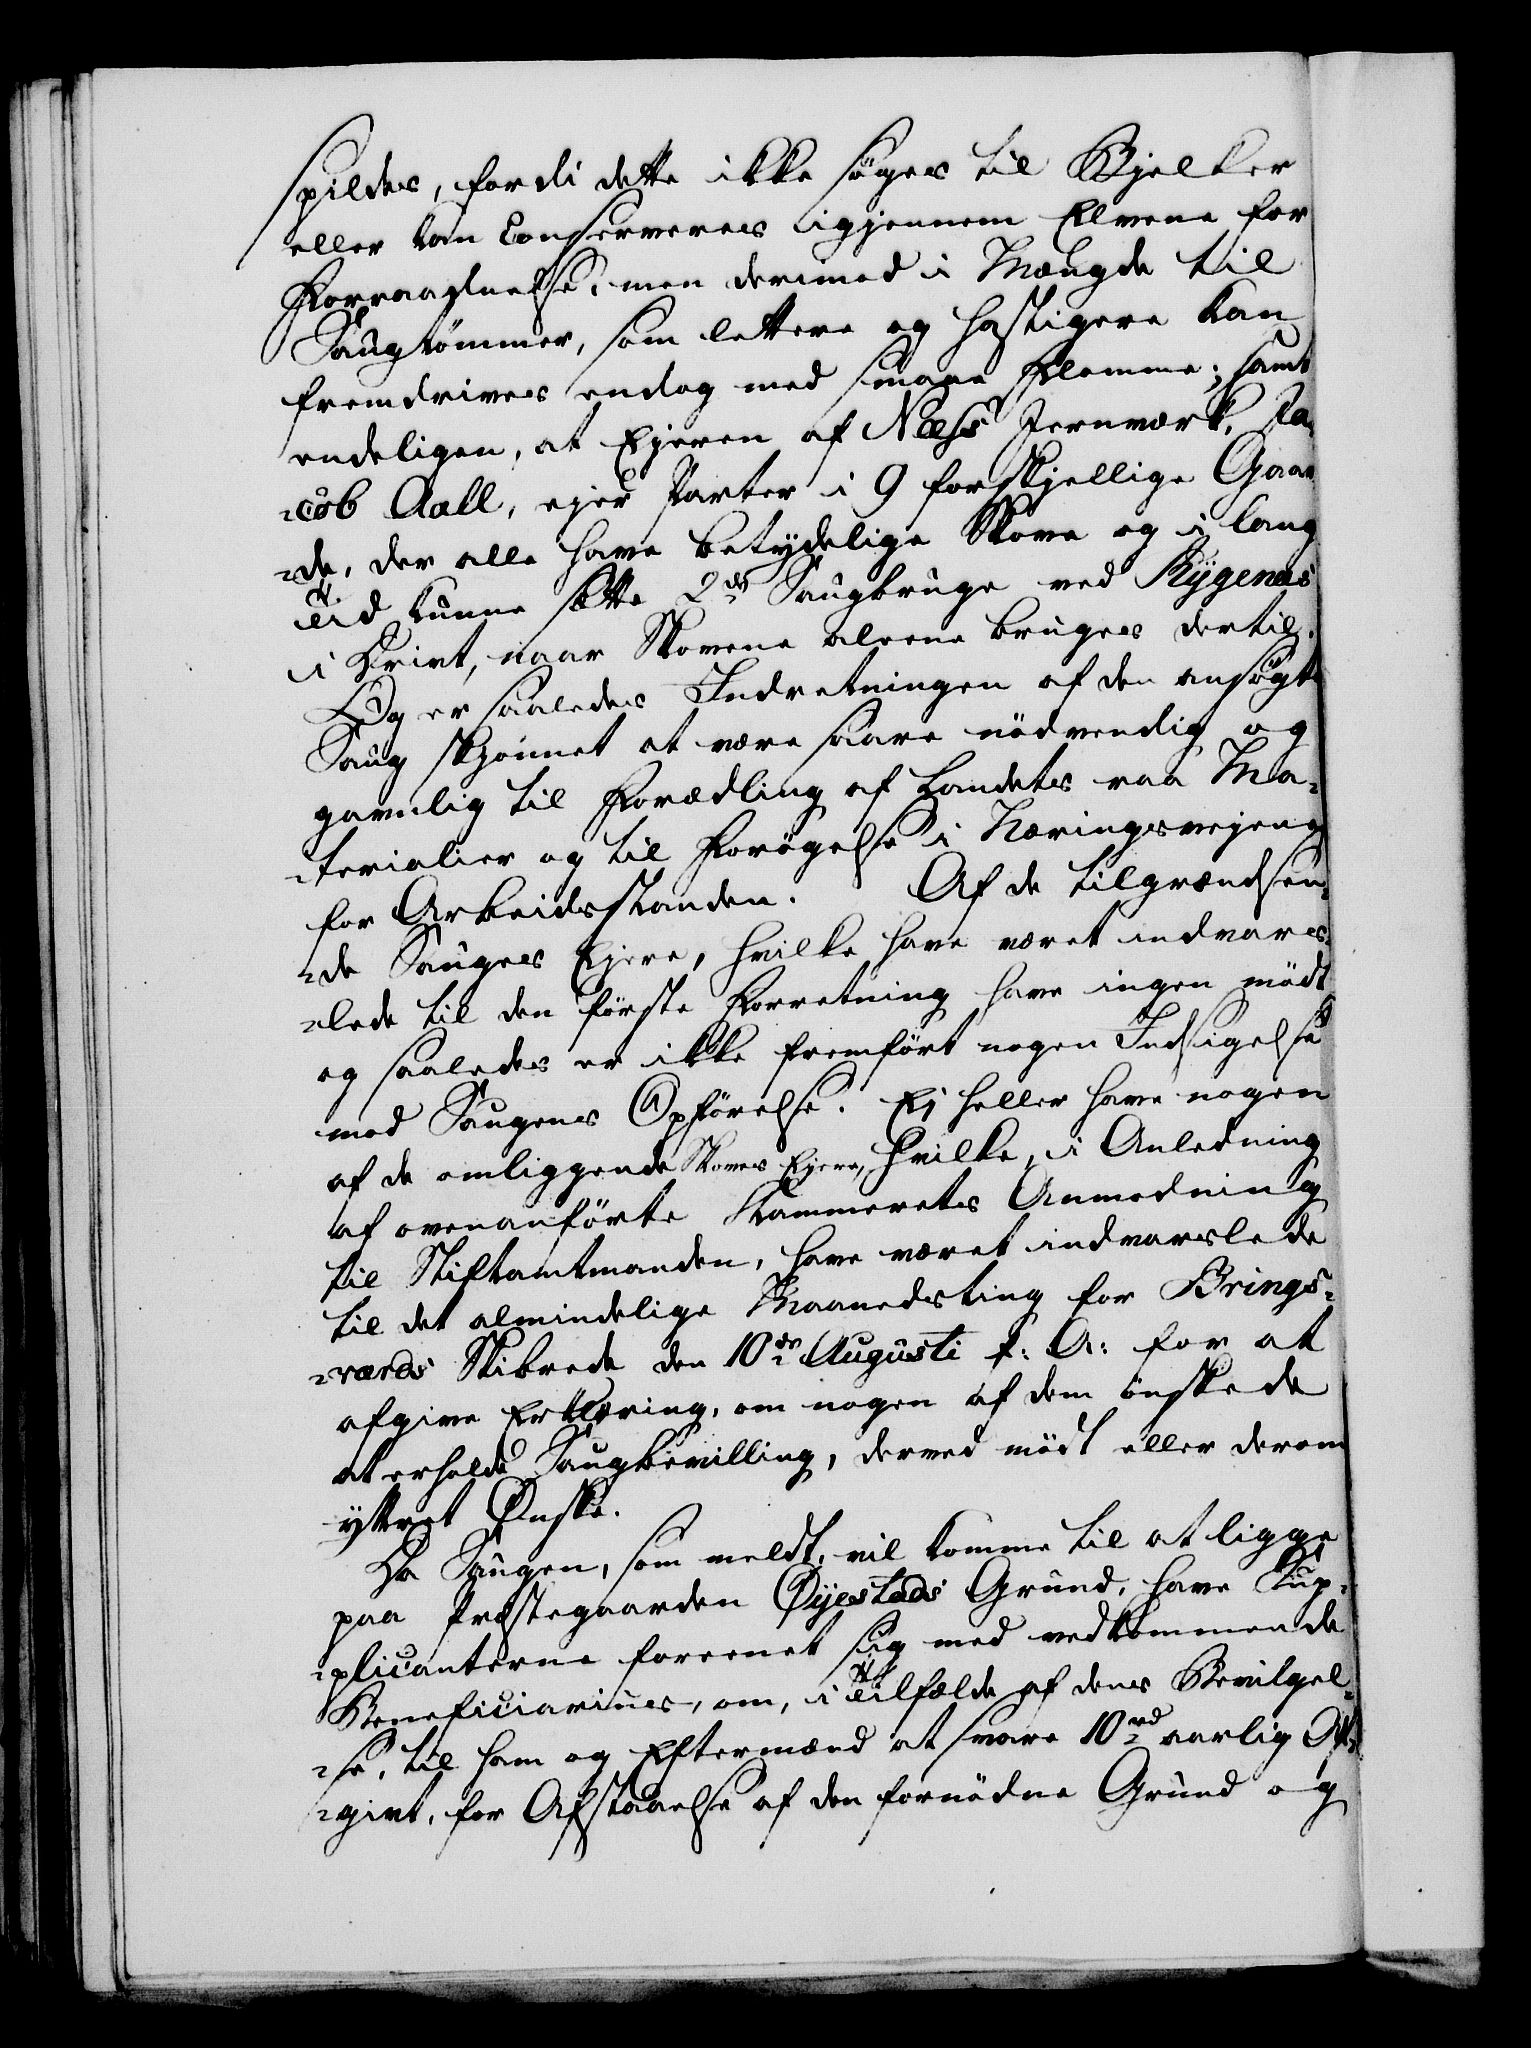 spildes, fordi dette ikke søges til Bjelker
eller kan Conserveres igjennem Elvene for
Forraadnelse, men derimod i Mængde til
Saugtømmer, som lettere og hastigere kan
fremdrives endog med smaae Flomme; samt
endeligen, at Ejeren af Næss Jernværk, Ja-
-cob Aall, ejer Parter i 9 forskjellige Gaar
-de, der alle have betydelige Skove og i lang
Tid kunne sætte 2de Saugbruge ved Rygenæs
i Drivt, naar Skovene aleene bruges dertil.
Og er saaledes Indretningen af den ansøgte
Saug skjønnet at være saare nødvendig og
gavnlig til Forædling af Landets raa Ma-
-terialier og til Forøgelse i Næringsvejene
for Arbeidsstanden. Af de tilgrændsen-
-de Sauges Ejere, hvilke have været indvars-
-lede til den første Forretning have ingen mødt
og saaledes er ikke fremført nogen Indsigelse
mod Saugens Opførelse. Ej heller have nogen
af de omliggende Skoves Ejere, hvilke, i Anledning
af ovenanførte Kammerets Anmodning
til Stiftamtmanden, have været indvarslede
til det almindelige Maanedsting for Brings-
-værds Skibrede den 10de Augusti f: A: for at
afgive Erklæring, om nogen af dem ønskede
at erholde Saugbevilling, derved mødt eller derom
yttret Ønske.
Da Saugen, som meldt, vil komme til at ligge
paa Præstegaarden Øyestads Grund, have Sup-
-plicanterne foreenet sig med vedkommende
Beneficiarius, om, i Tilfælde af dens Bevilgel-
-se, til ham og Eftermænd at svare 10 rd aarlig Af-
-givt, for Afstaaelse af den fornødne Grund og